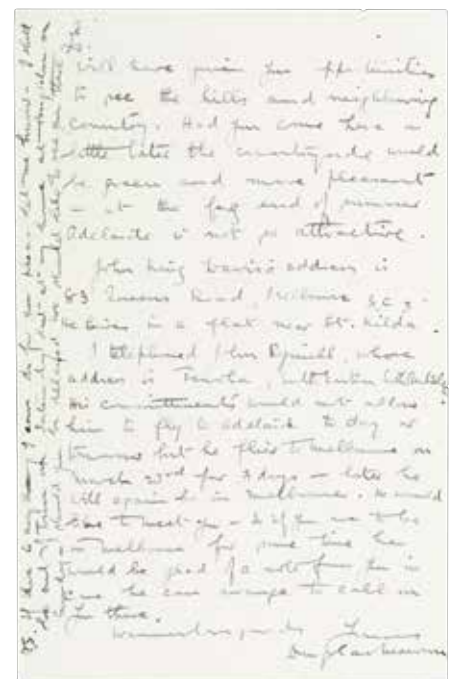 will have given you opportunities
to see the hills and neighbouring
country. Had you come here a
little later the countryside would
be green and more pleasant
— at the fag end of summer
Adelaide is not so attractive.
John King Davis's address is
83 Queens Road, Melbourne S.C.3
He lives in a flat near St. Kilda.
I telephoned John Rymill, whose
address is Penola, South Eastern
his committments would not allow
him to fly to Adelaide to day or
tomorrow but he flies to Melbourne on
March 23rd for 3 days — later he
will again be in Melbourne. He would
like to meet you — & if you are to be
in Melbourne for some time he
would be glad of a note from you in
case he can arrange to call on
you there.
Warmest regards Yours
Douglas Mawson
P.S. If there is anything I can do for you please let me know. I shall